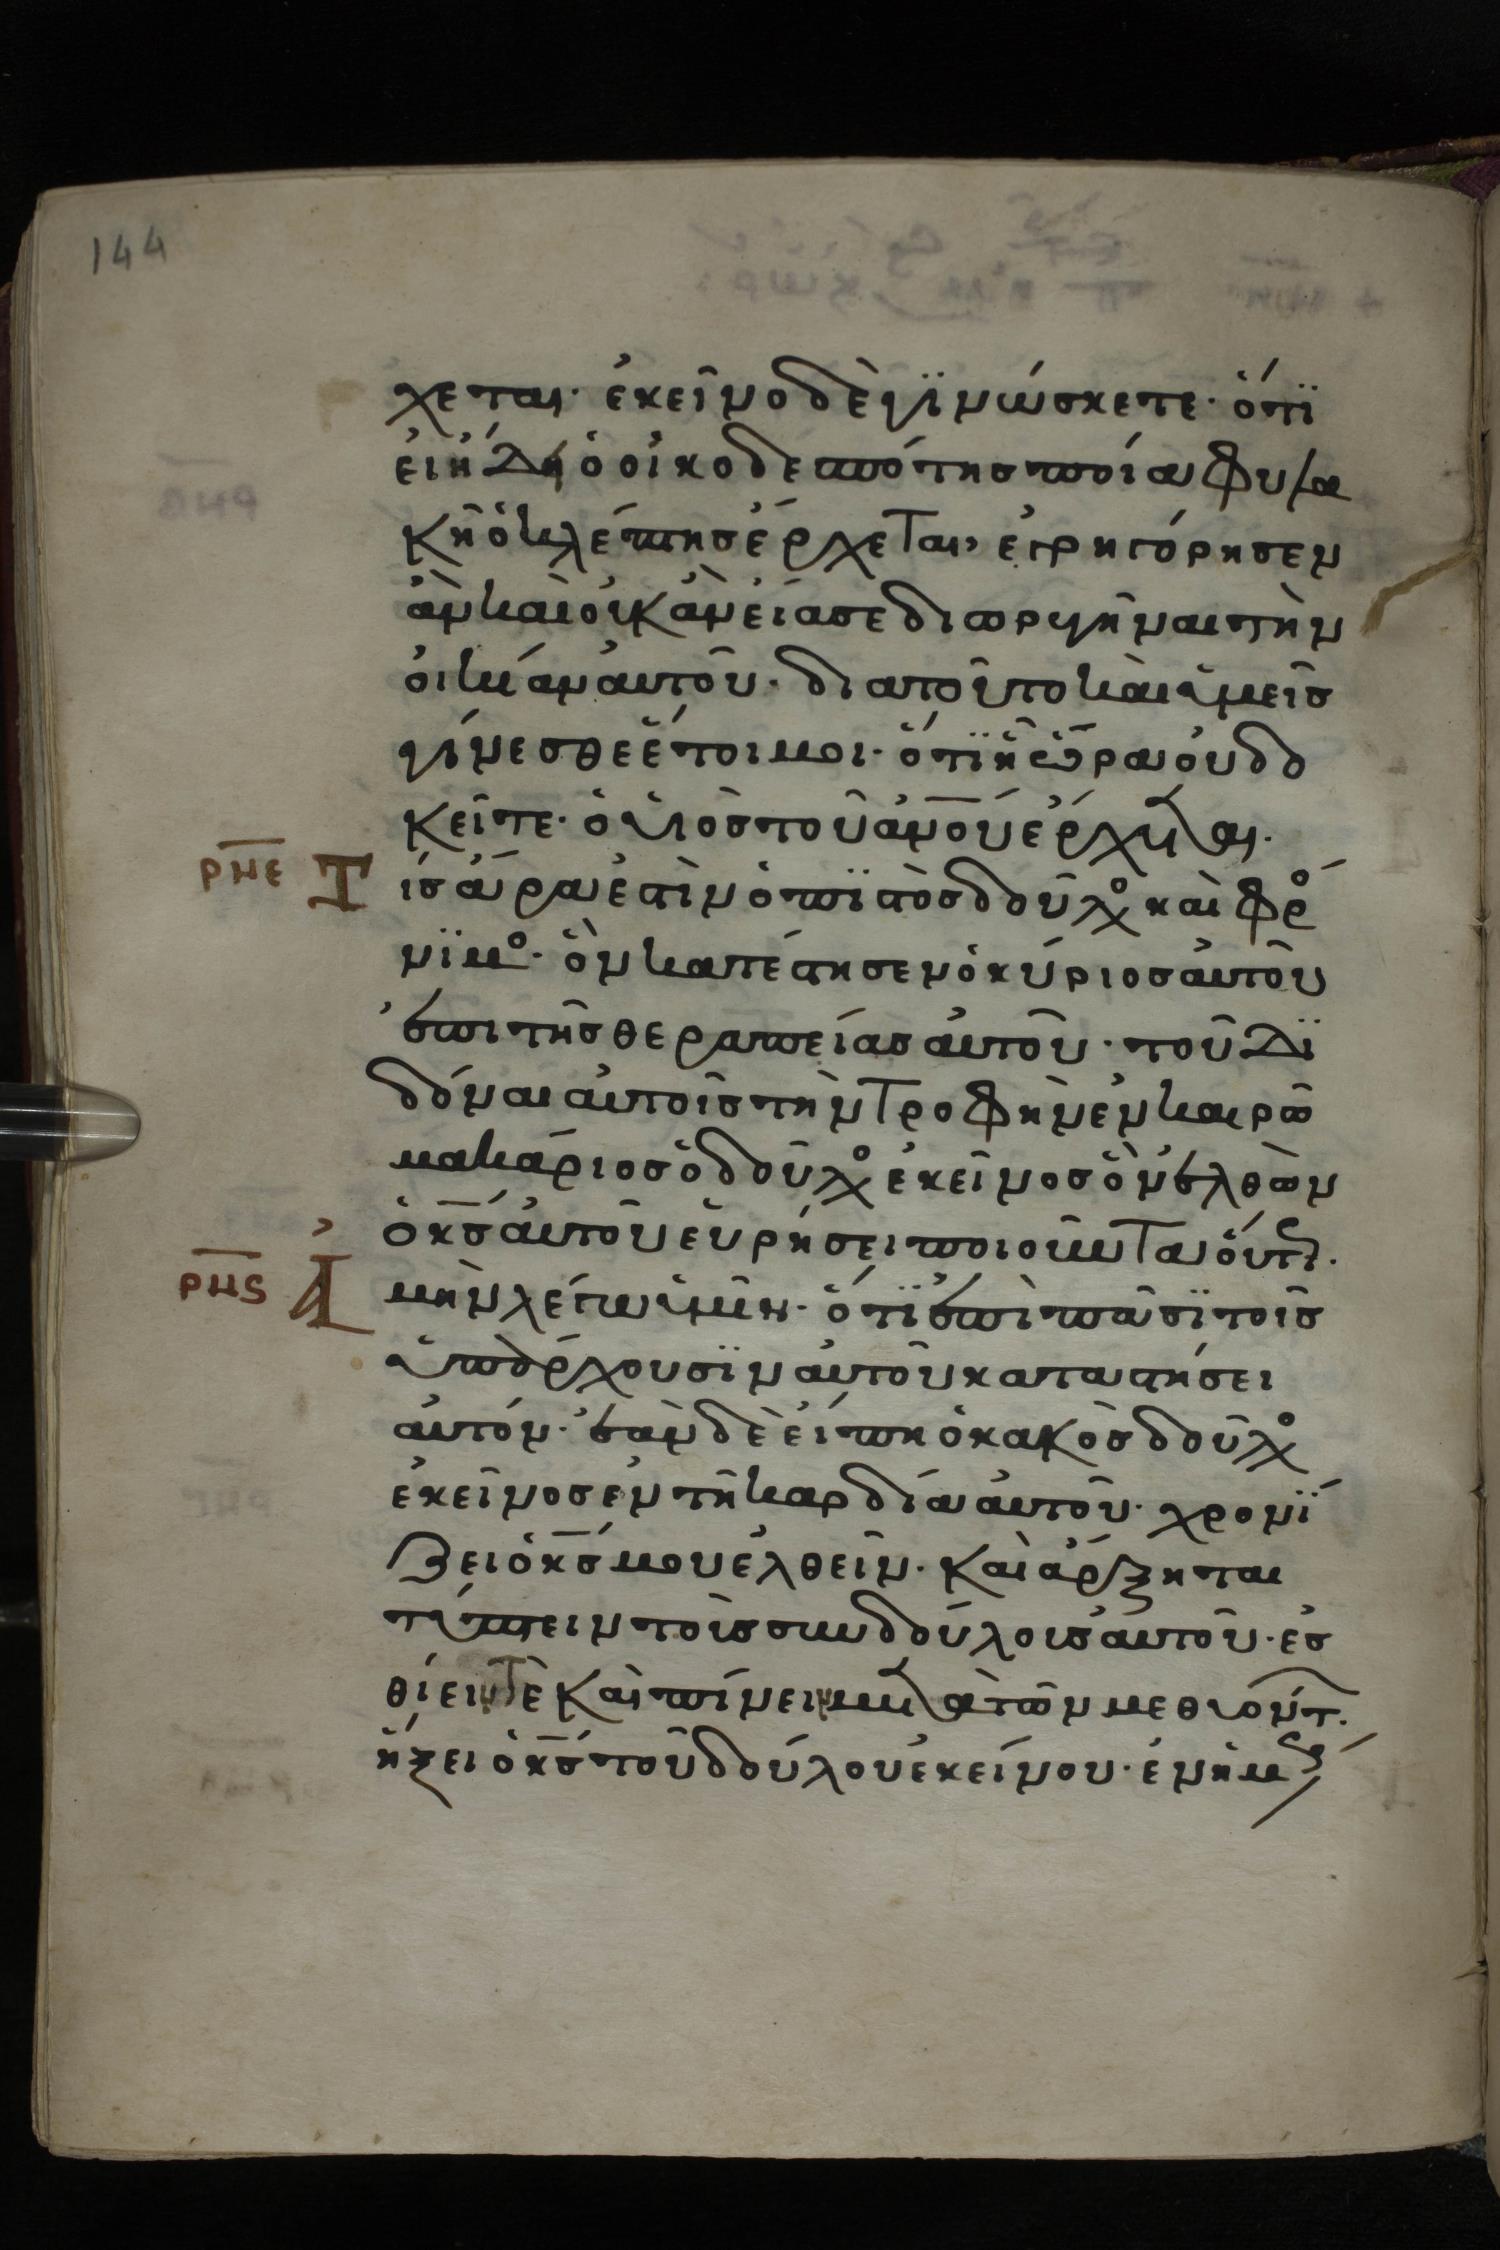 144
χεται· ἐκεῖνο δὲ γϊνώσκετε· ὅτϊ
εἰ ἤδη ὁ οἰκοδεσπότης ποία φυλα
κῆ ὁ κλέπτης ἔρχεται, ἐγρηγόρησεν
ἂν καὶ οὐκ ἂν εἴασε διορυγῆναι τὴν
οἰκίαν αὐτοῦ· διατοῦτο καὶ ὑμεῖς
γίνεσθε ἕτοιμοι· ὅτϊ ἧ ὥρα οὐ δο
κεῖτε· ὁ υἱὸς τοῦ ἀνου ἔρχεται·
ρμε Τ ίς ἄρα ἐστὶν ὁ πϊστὸς δοῦλο καὶ φρό
νϊμο· ὃν κατέστησεν ὁ κύριος αὐτοῦ
ἐπι τῆς θεραπείας αὐτοῦ· τοῦ δϊ
δόναι αὐτοῖς τὴν τροφὴν ἐν καιρῶ
μακάριος ὁ δοῦλο ἐκεῖνος ὃν ἐλθὼν
ὁ κς αὐτοῦ εὑρήσει ποιοῦντα οὕτς·
ρμς Ἀ μὴν λέγω ὑμῖν· ὅτϊ ἐπὶ πᾶσϊ τοῖς
ὑπάρχουσϊν αὐτοῦ καταστήσει
αὐτόν· ἐὰν δὲ εἴπη ὁ κακὸς δοῦλο
ἐκεῖνος ἐν τῆ καρδία αὐτοῦ· χρονϊ
ζει ὁ κς μου ἐλθεῖν· καὶ ἄρξηται
τύπτειν τοῖς συνδούλοις αὐτοῦ· ἐσ
θίειν τὲ καὶ πίνειν μετὰ τῶν μεθυόντ·
ἥξει ὁ κς τοῦ δούλου ἐκείνου· ἐν ἡμέρ